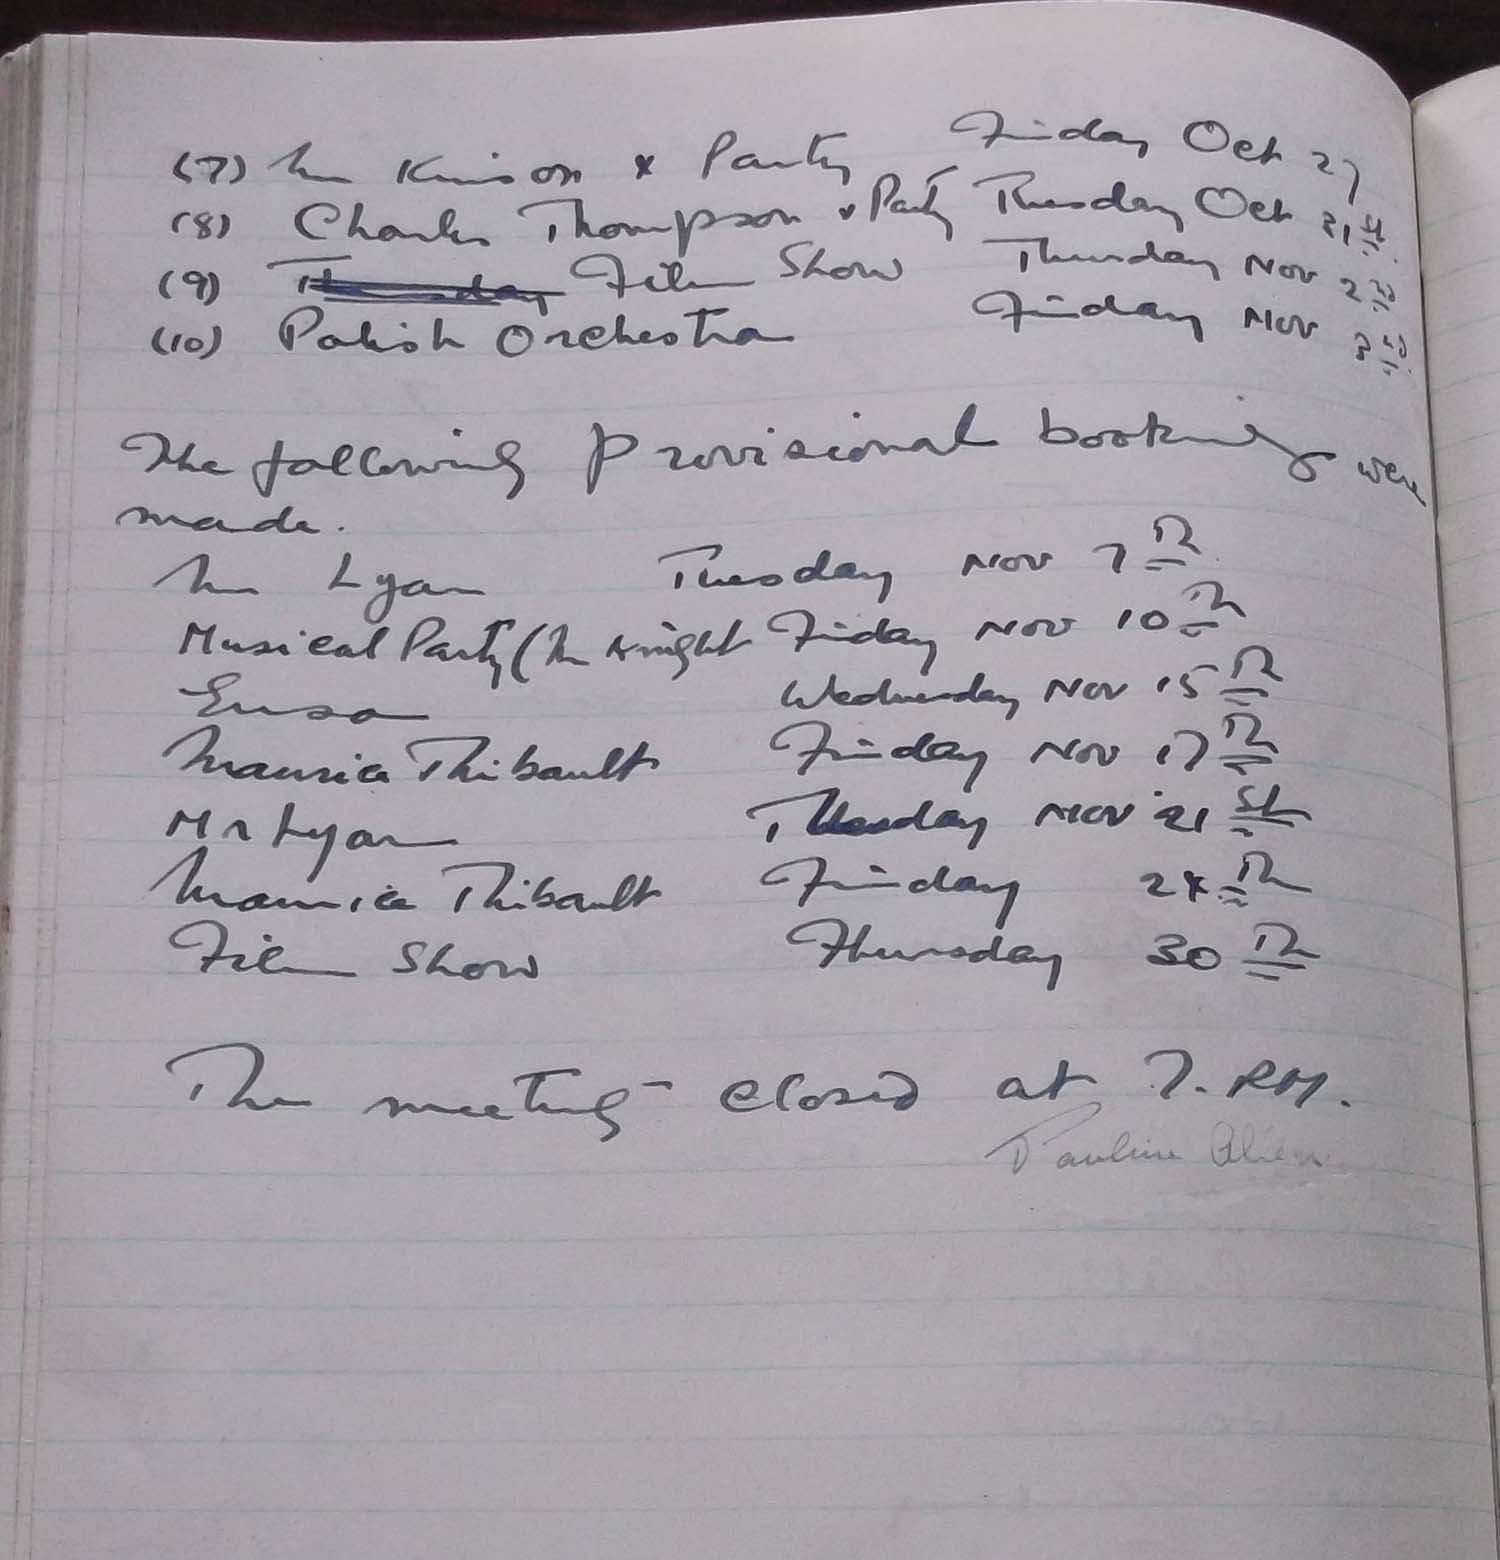 (7) Mr Kinson & Party Friday Oct 27
(8) Charles Thompson & Party Tuesday Oct 31st.
(9) Thursday Film Show Thursday Nov 2nd
(10) Polish Orchestra Friday Nov 3rd
The following provisional booking were
made.
Mr Lyan Tuesday Nov 7th
Musical Party (Mr Knight Friday Nov 10th
Ensa Wednesday Nov 15th
Maurice Thibault Friday Nov 17th
Mr Lyan Tuesday Nov 21st
Maurice Thibault Friday 24th
Film Show Thursday 30th
The meeting closed at 7. PM.
Pauline